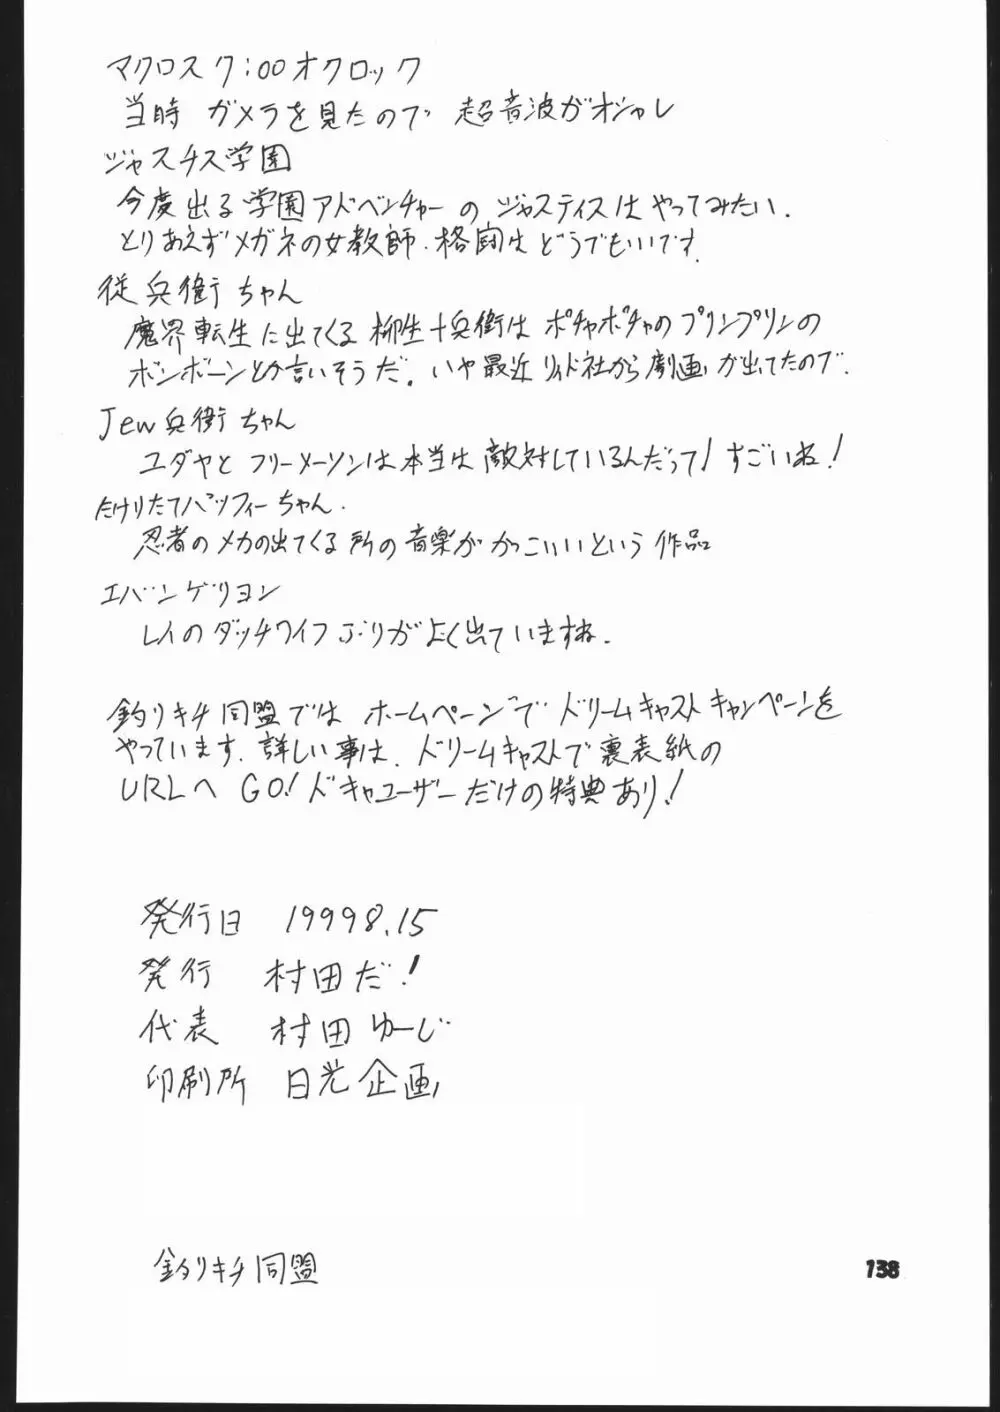 マクロス 7:00オクロック
当時 ガメラを見たので 超音波がオシャレ
ジャスチス学園
今度出る学園アドベンチャーの ジャスティスは やってみたい.
とりあえずメガネの女教師.格闘は どうでもいいです.
従兵衛ちゃん
魔界転生に出てくる 柳生十兵衛は ポチャポチャのプリンプリンの
ボンボーンとか言いそうだ。いや最近 リイド社から劇画が出てたので.
Jew兵衛ちゃん
ユダヤと フリーメーソンは本当は 敵対しているんだって! すごいね!
たけりたてバッフィーちゃん.
忍者のメカの出てくる 所の音楽が かっこいいという 作品
エバンゲリヨン
レイのダッチワイフぶりがよく出ていますね.
釣りキチ同盟では ホームページで ドリームキャストキャンペーンを
やっています.詳しい事は. ドリームキャストで 裏表紙の
URLへ GO! ドキャユーザーだけの特典あり!
発行日 19998.15
発行 村田だ!
代表 村田 ゆーじ
印刷所 日光企画
釣りキチ同盟
138